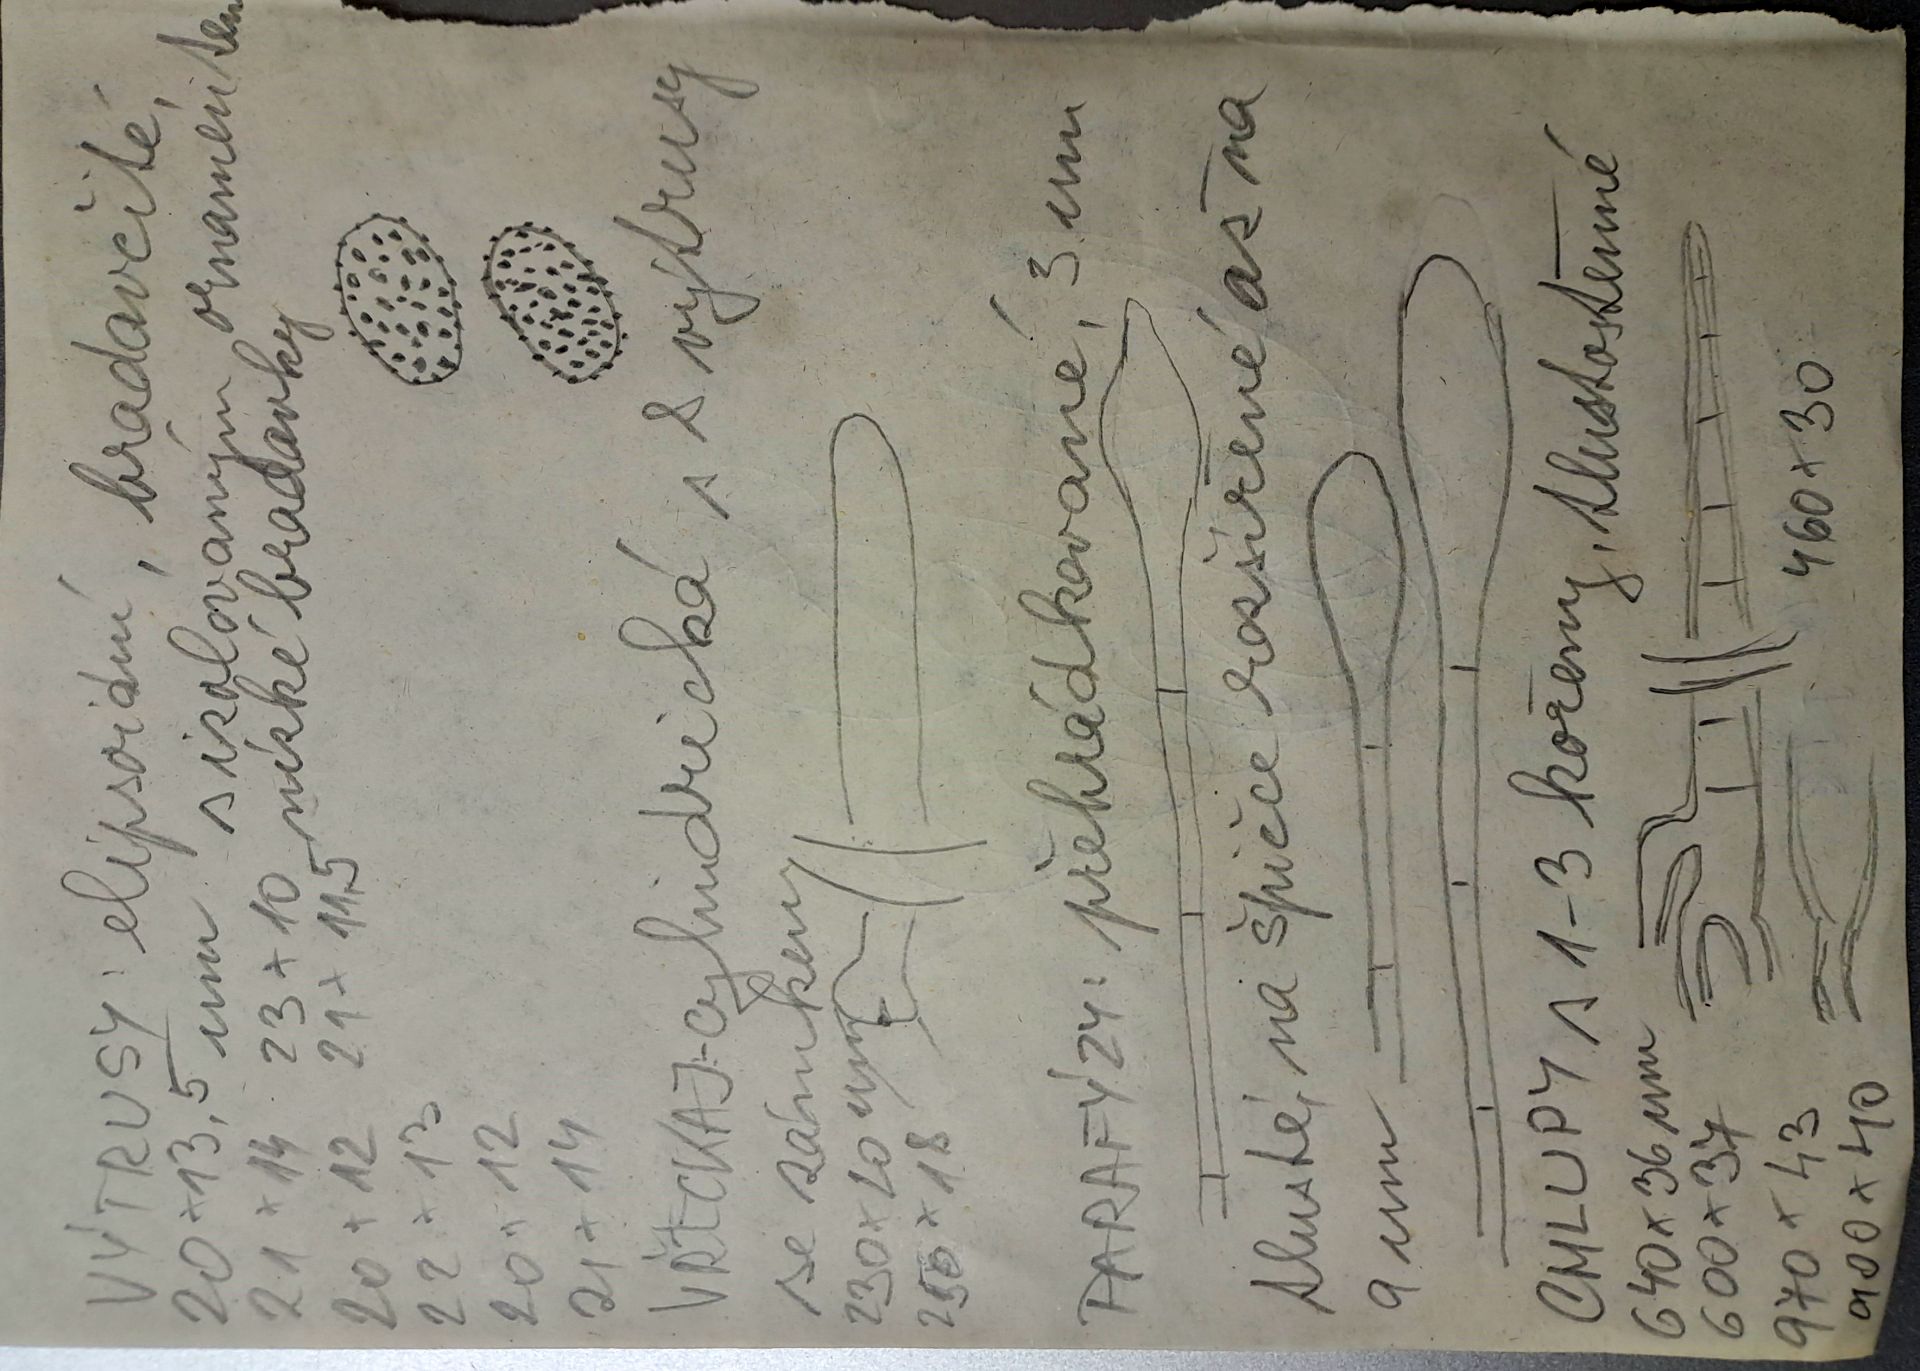 VÝTRUSY: elipsoidní, bradavčité,
20×13,5 um s izolovaným ornamentem
21×14 23×10 nízké bradavky
20×12 21×11,5
22×13
20×12
21×14
VŘECKA J- cylindrická s 8 výtrusy
se zámkem
230×20 um
250×18
PARAFÝZY: přehrádkované, 3 um
tlusté, na špičce rozšířené až na
9 um
CHLUPY s 1-3 kořeny, tlustostěnné
640×36 um
600×37
970×43 460×30
900×40